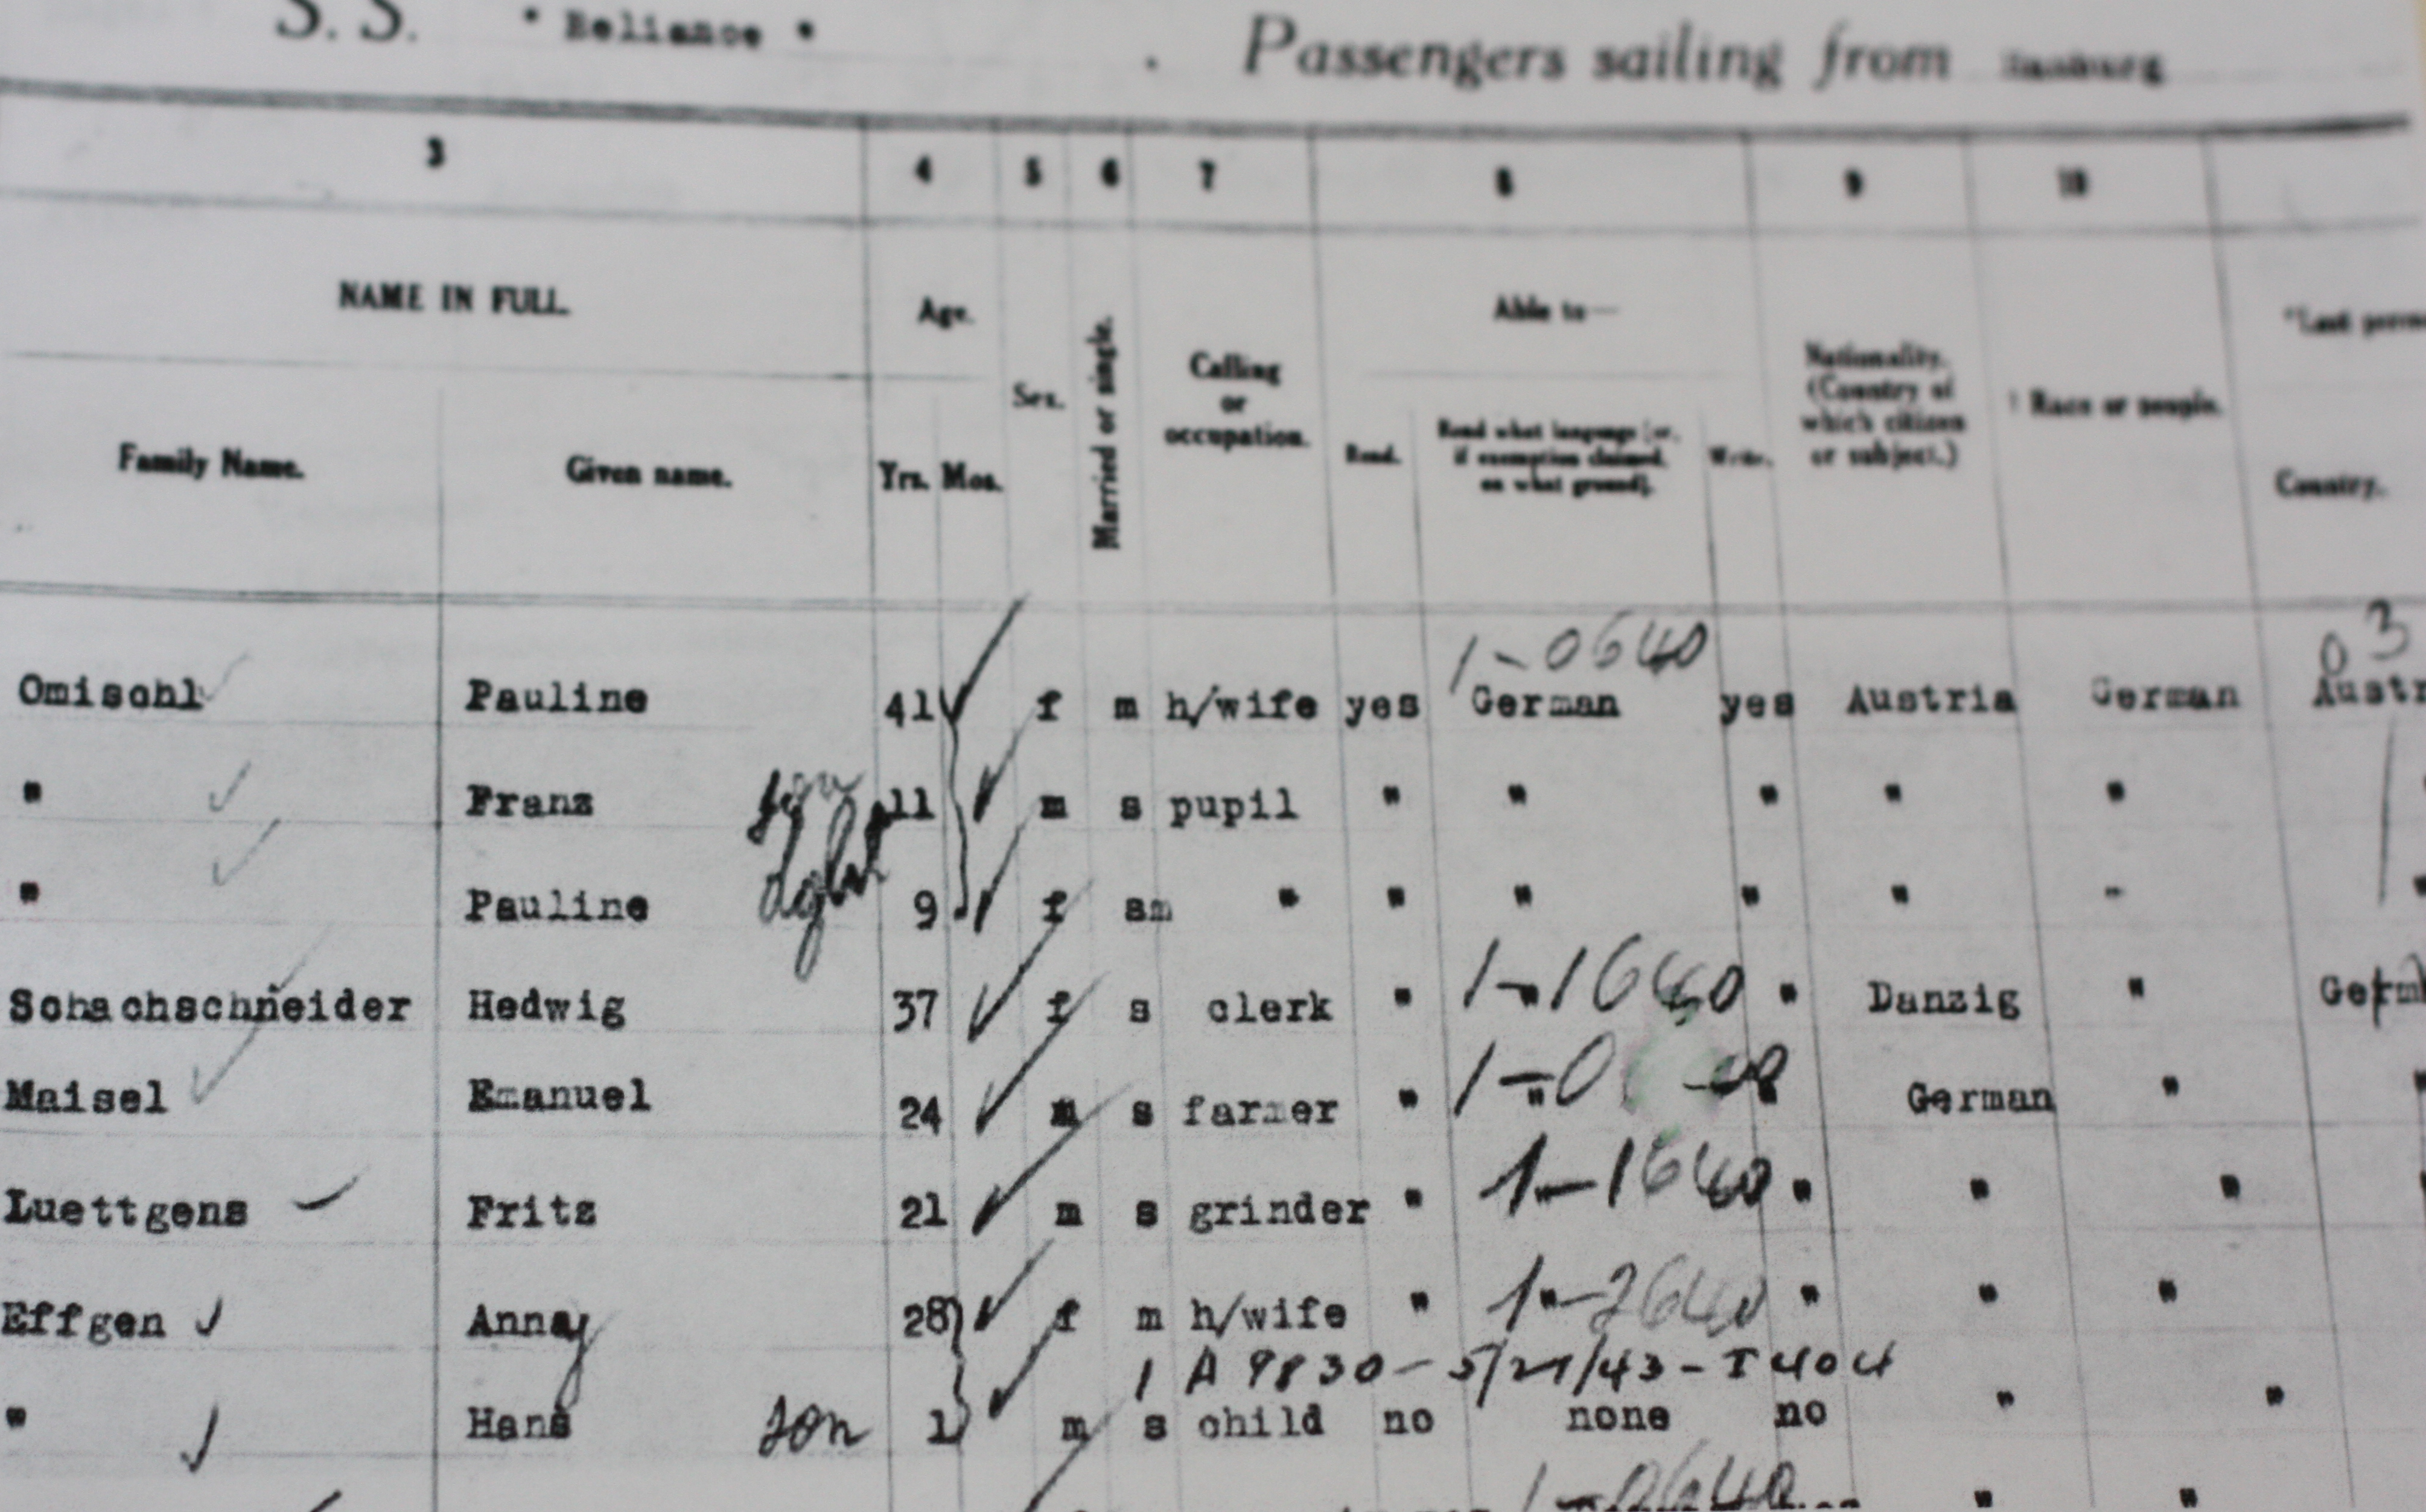 S. S. " Reliance " . Passengers sailing from Hamburg
3 4 5 6 7 8 9 10
NAME IN FULL. Age. Sex. Married or single. Calling or occupation. Able to— Nationality. (Country of which citizen or subject.) † Race or people. *Last perma
Family Name. Given name. Yrs. Mos. Read. Read what language [or, if exemption claimed, on what ground]. Write. Country.
1-0640 03
Omischl Pauline 41 f m h/wife yes German yes Austria German Austr
" Franz son 11 m s pupil " " " " "
" Pauline dght 9 f sm " " " " " " "
1-1640
Schachschneider Hedwig 37 f s clerk " " " Danzig " Germ
Maisel Emanuel 24 m s farmer " " " German " "
1-1640
Luettgens Fritz 21 m s grinder " " " " " "
1-2640
Effgen Anna 28 f m h/wife " " " " "
1 A 9830-5/21/43-T404
" Hans son 1 m s child no none no " "
1-0640
" "